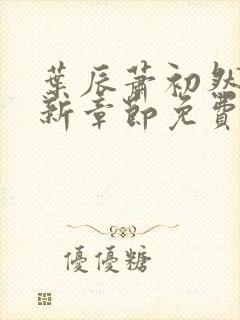 葉辰蕭初然
新章節免費
優優糖